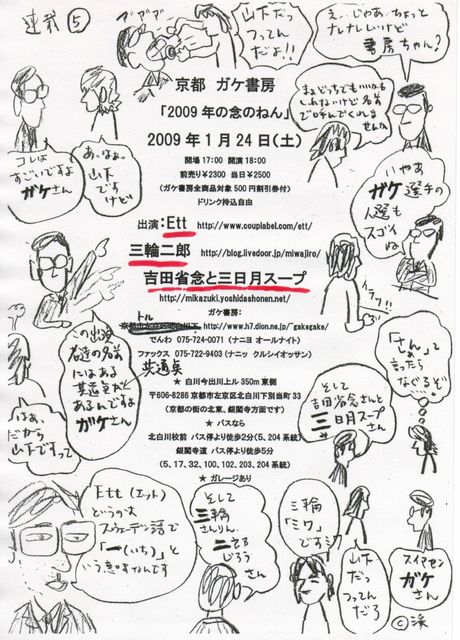 連載⑤
ブブブブ
山下だっ
つってん
だよ!!
えーじゃあ、ちょっと
ナレナレしいけど
書房ちゃん?
京都 ガケ書房
「2009年の念のねん」
2009年1月24日(土)
開場17:00 開演18:00
前売り¥2300 当日¥2500
(ガケ書房全商品対象500円割引券付)
ドリンク持込自由
まぁどっちでもいいかも
しれないけど名前
で呼んでくれま
せんか
コレは
すごいですよ
ガケさん
あ、はぁ、
山下
ですけど
いやぁ
ガケ選手の
人選も
スゴイ
ね
出演:Ett http://www.couplabel.com/ett/
三輪二郎 http://blog.livedoor.jp/miwajiro/
吉田省念と三日月スープ
http://mikazuki.yoshidashonen.net/
ガケ書房:
http://www.h7.dion.ne.jp/~gakegake/
でんわ 075-724-0071(ナニヨ オールナイト)
ファックス 075-722-9403(ナニッ クルシイオッサン)
共通点
★ 白川今出川上ル 350m 東側
〒606-8286 京都市左京区北白川下別当町33
(京都の街の北東、銀閣寺方面です)
★ バスなら
北白川校前 バス停より徒歩2分(5、204系統)
銀閣寺道 バス停より徒歩5分
(5、17、32、100、102、203、204系統)
★ ガレージあり
イラッ!!
この出演
者達の名前
にはある
共通点が
あるんですよ
ガケさん
はぁ、
だから
山下ですって
「さん」
って
言った
らなぐるぞ
そして
吉田省念さんと
三日月スープ
さん
Ett(エット)
というのは
スウェーデン語で
「一(いち)」と
いう意味なんです
そして
三輪
さんりん
二郎
じろう
さん
三輪
「ミワ」
ですミワ
山下
だっ
つってん
だろ
スイマセン
ガケ
さん